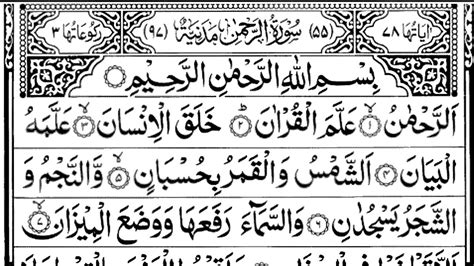 اٰیَاتُهَا ٧٨ (٥٥) سُوْرَةُ الرَّحْمٰنِ مَدَنِیَّةٌ (٩٧) رُكُوْعَاتُهَا ٣
بِسْمِ اللّٰهِ الرَّحْمٰنِ الرَّحِیْمِ
اَلرَّحْمٰنُ ۙ﴿١﴾ عَلَّمَ الْقُرْاٰنَ ؕ﴿٢﴾ خَلَقَ الْاِنْسَانَ ۙ﴿٣﴾ عَلَّمَهُ
الْبَیَانَ ﴿٤﴾ اَلشَّمْسُ وَ الْقَمَرُ بِحُسْبَانٍ ۪﴿٥﴾ وَّ النَّجْمُ وَ
الشَّجَرُ یَسْجُدٰنِ ﴿٦﴾ وَ السَّمَآءَ رَفَعَهَا وَ وَضَعَ الْمِیْزَانَ ۙ﴿٧﴾